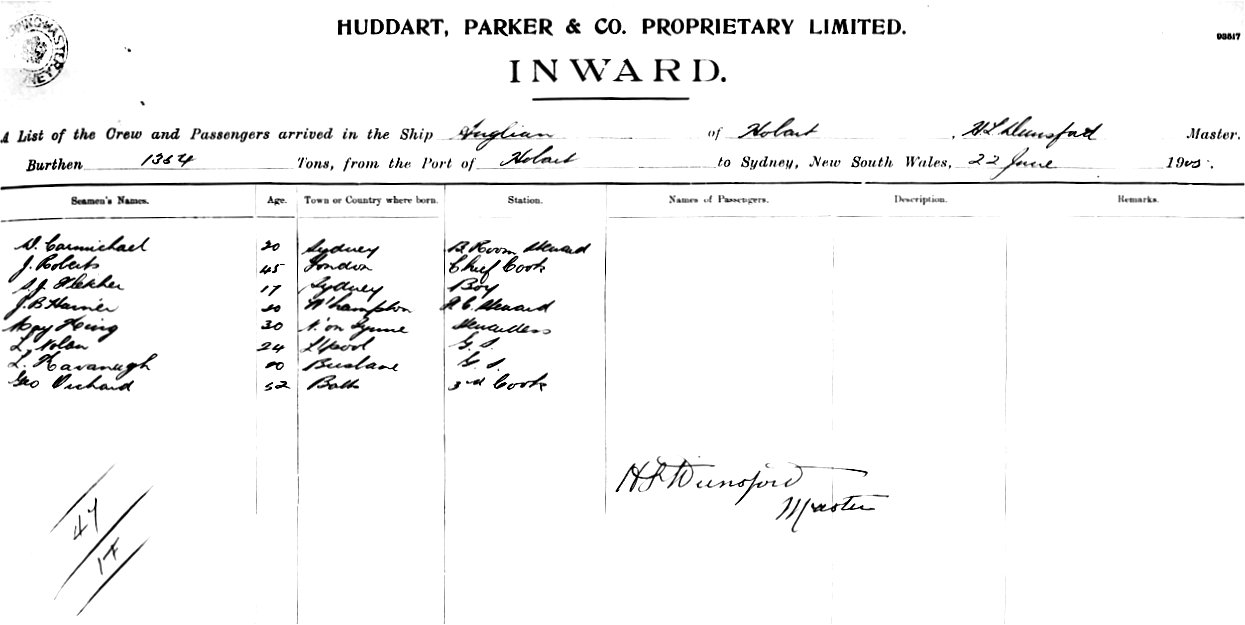 HUDDART, PARKER & CO. PROPRIETARY LIMITED.
93517
INWARD.
A List of the Crew and Passengers arrived in the Ship Anglian of Hobart, H L Dunsford Master.
Burthen 1354 Tons, from the Port of Hobart to Sydney, New South Wales, 22 June 1905.
Seamen's Names. Age. Town or Country where born. Station. Names of Passengers. Description. Remarks.
D. Carmichael 20 Sydney B. Room Steward
J. Roberts 45 London Chief Cook
S. J. Fletcher 17 Sydney Boy
J. B. 20 W'hampton Steward
May King 30 N. on Tyne Stewardess
L. Nolan 24 L'pool G. S.
L. Kavanagh 20 Brisbane G. S.
Geo 52 Bath 3rd Cook
H L Dunsford
Master
47
17